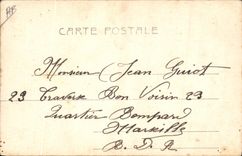 CARTE POSTALE
Monsieur Jean Guiot
23 Traverse Bon Voisin 23
Quartier Bompard
Marseille
B. D. R